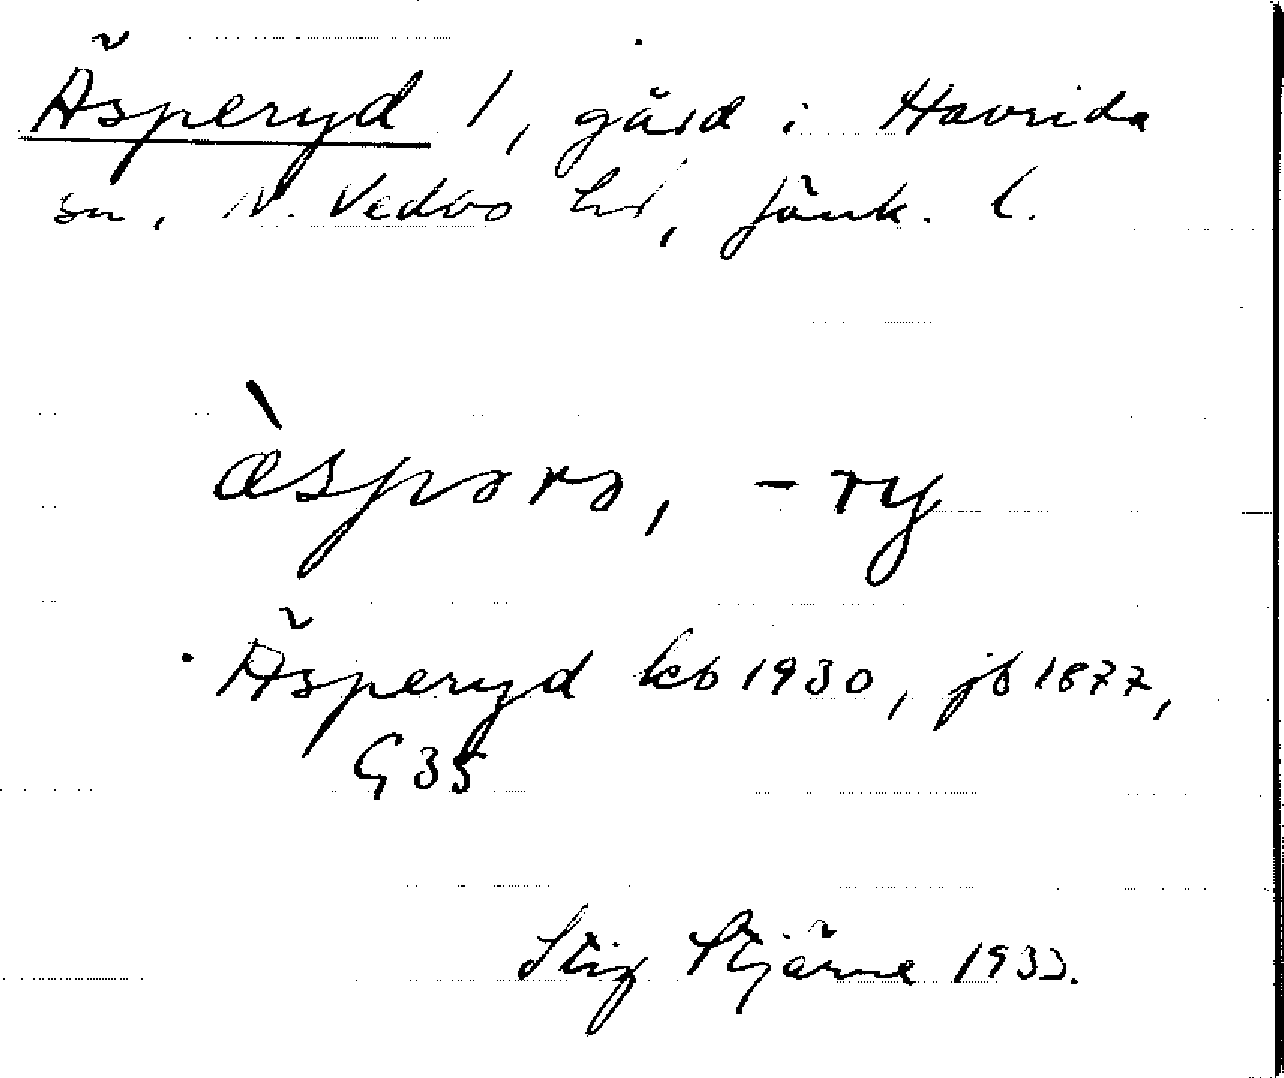 Äsperyd 1, gård i Haurida
sn, N. Vedbo hd, Jönk. l.
æ̀spərə, -ry
Äsperyd kb 1930, jb 1877,
G 35
Stig Stjärne 1933.